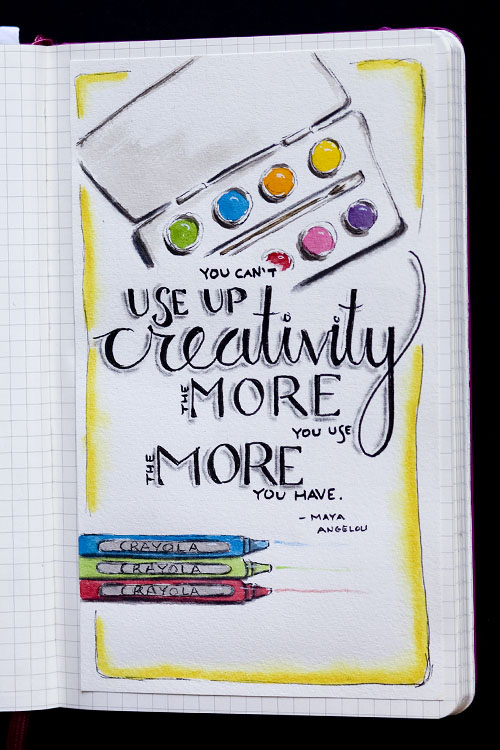 YOU CAN'T
USE UP
creativity
THE MORE
YOU USE
THE MORE
YOU HAVE.
- MAYA
ANGELOU
CRAYOLA
CRAYOLA
CRAYOLA